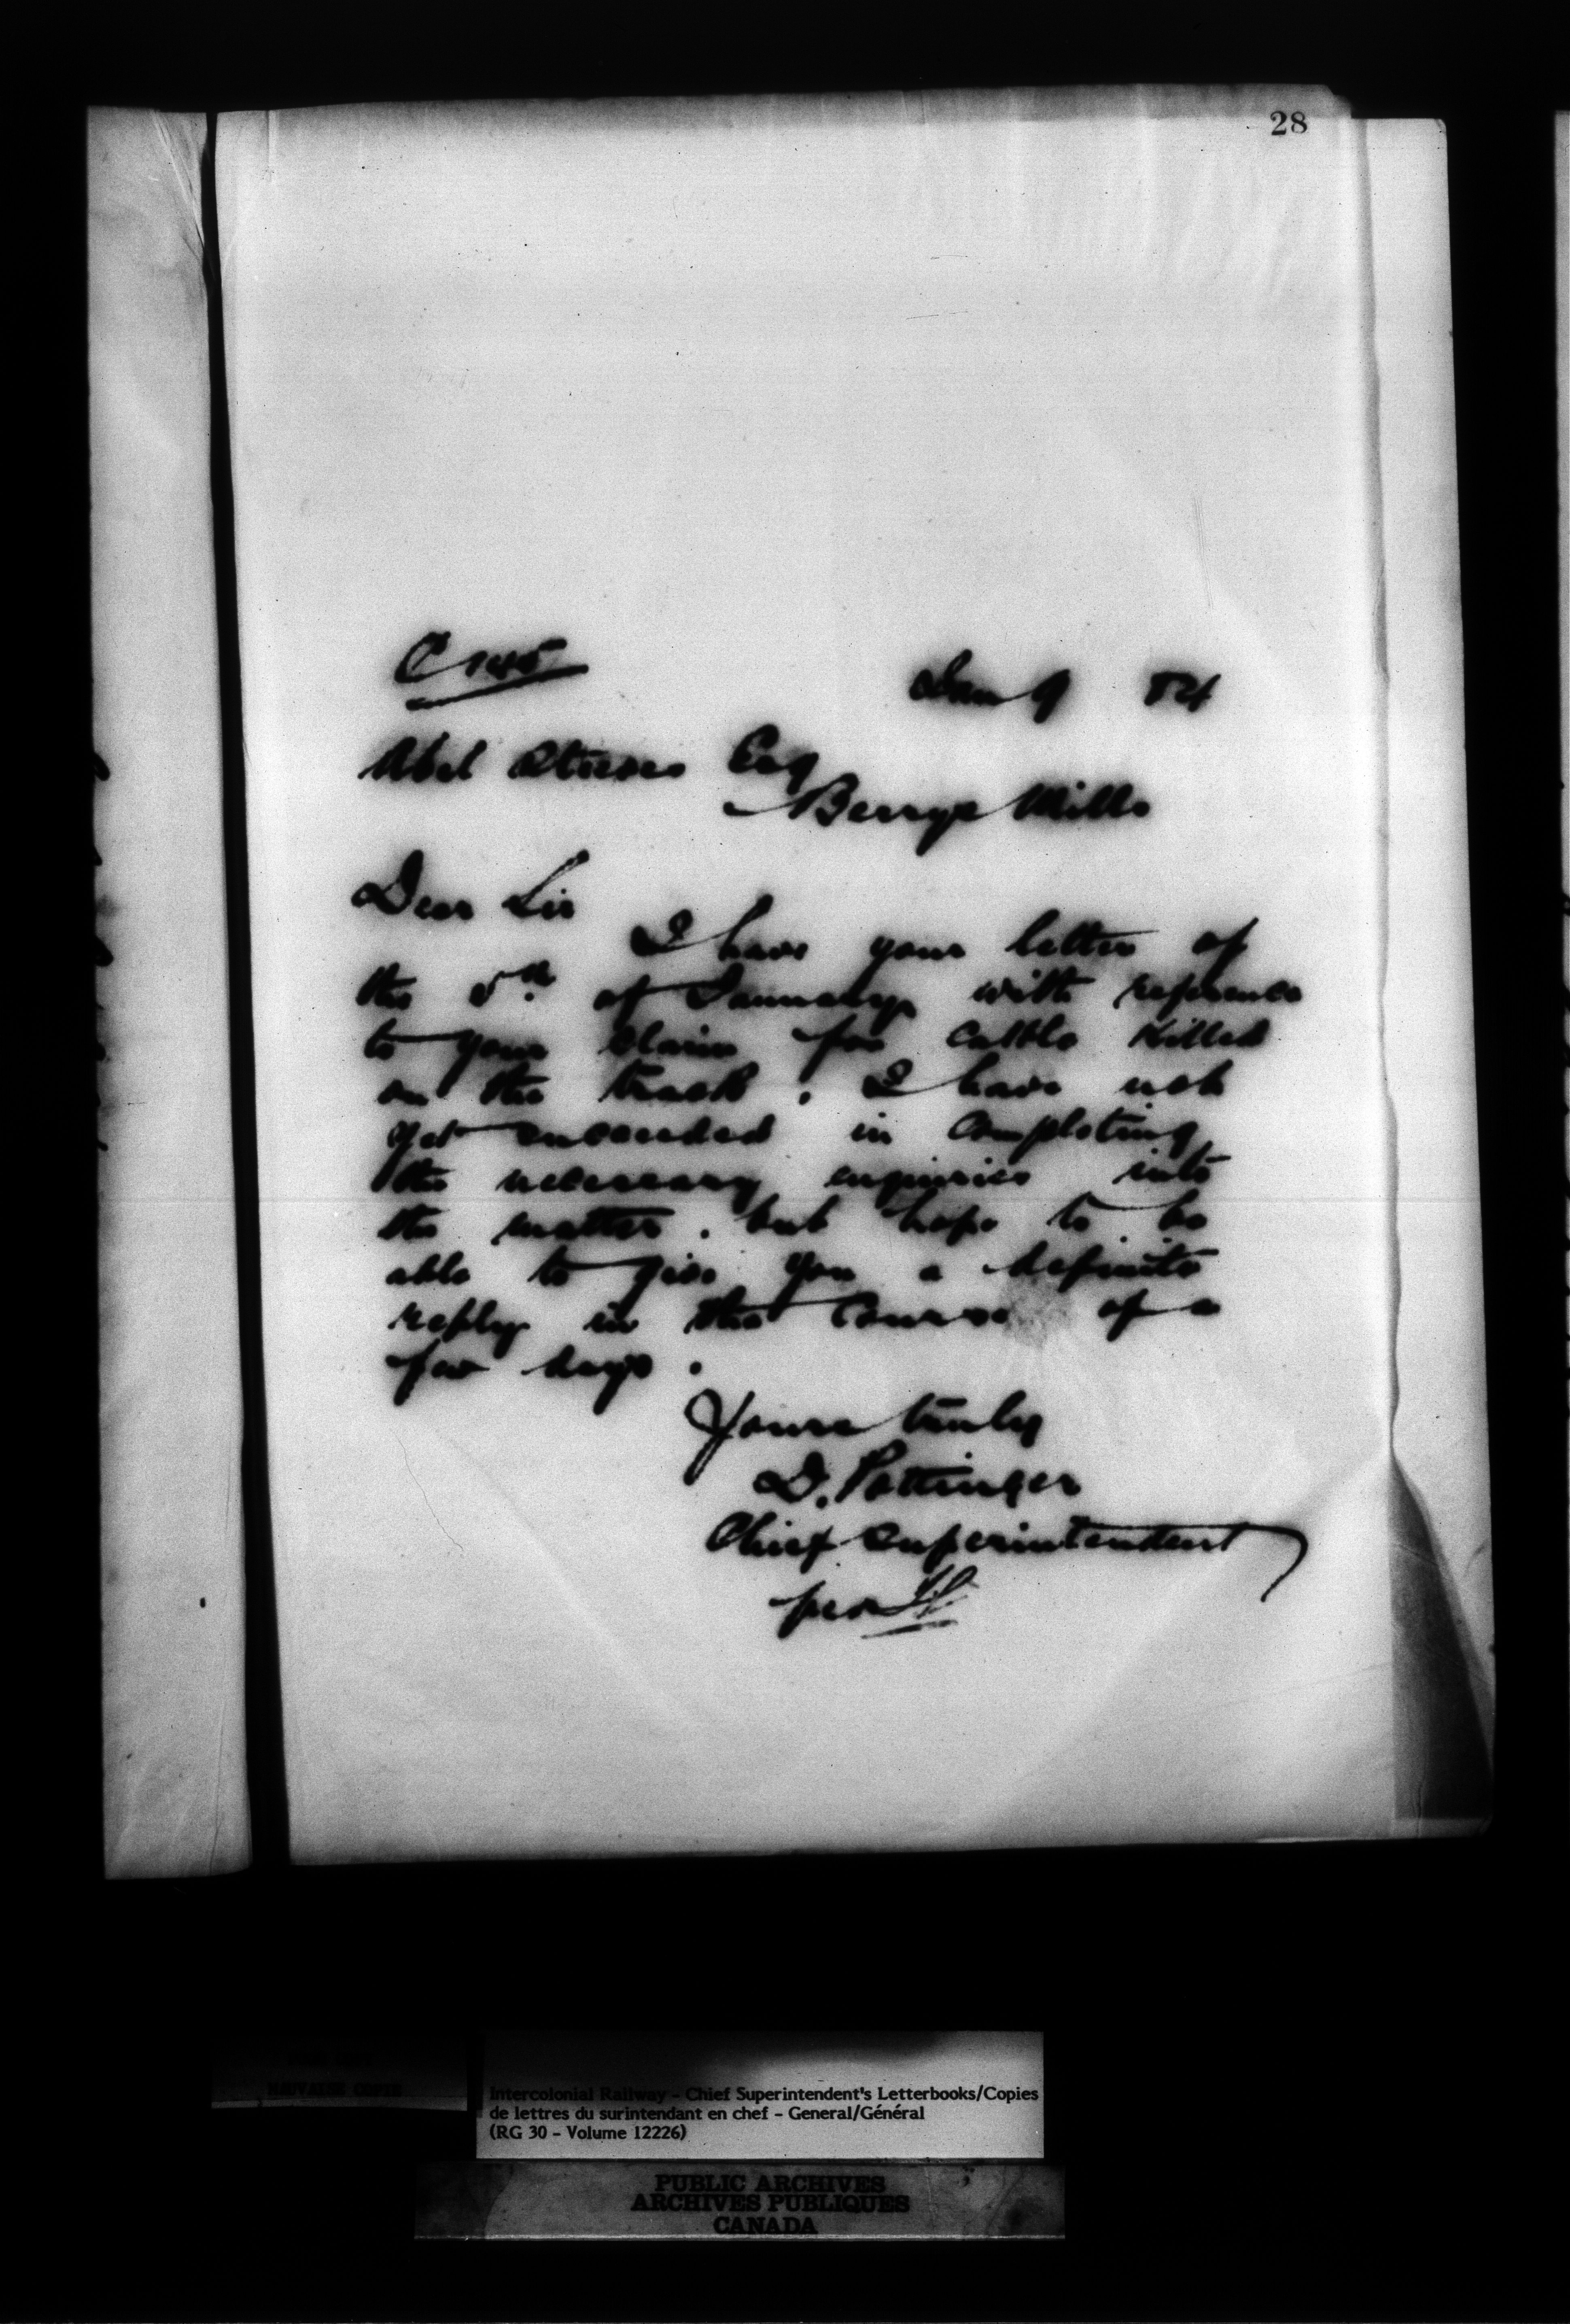 28
C 145
Jan 9 84
Abel Steeves Esq
Berrys Mills
Dear Sir
I have your letter of
the 5th of January with reference
to your claim for cattle killed
on the track. I have not
yet succeeded in completing
the necessary enquiries into
the matter, but hope to be
able to give you a definite
reply in the course of a
few days.
Yours truly
D. Pottinger
Chief Superintendent
per
MAUVAISE COPIE
Intercolonial Railway - Chief Superintendent's Letterbooks/Copies
de lettres du surintendant en chef - General/Général
(RG 30 - Volume 12226)
PUBLIC ARCHIVES
ARCHIVES PUBLIQUES
CANADA